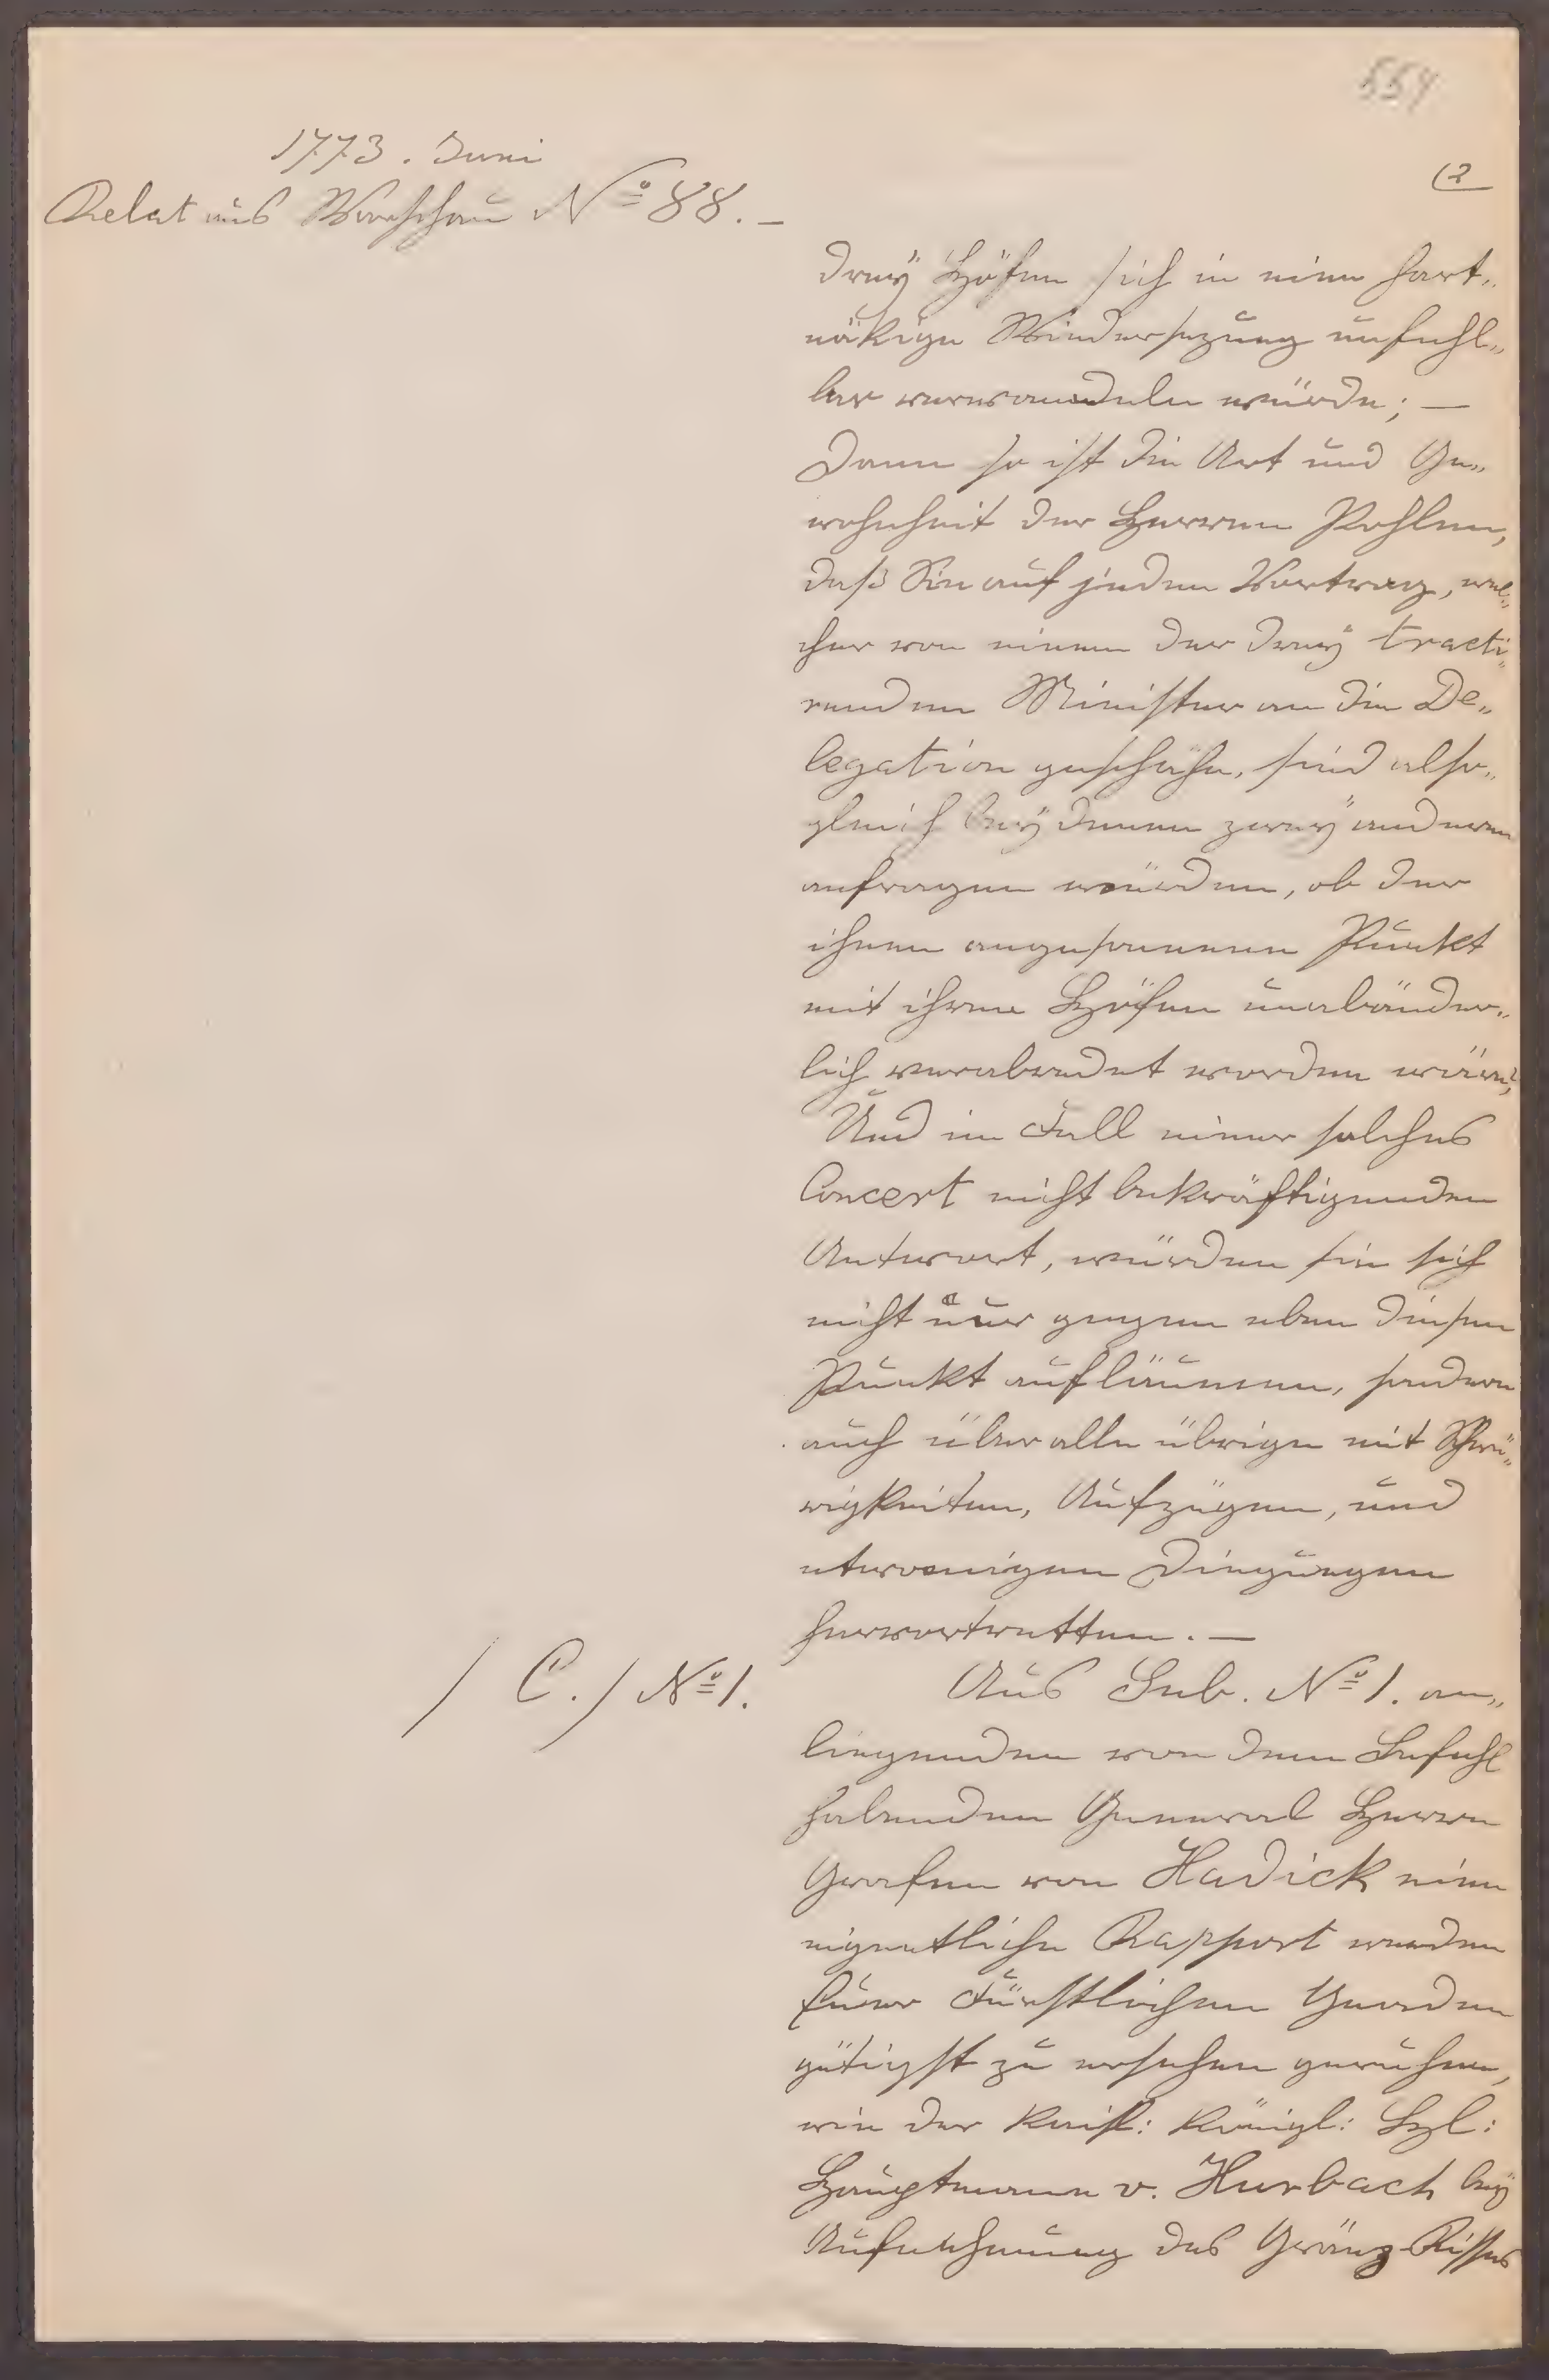 554
1773. Juni
(2
Relat aus Warschau Nº 88. –
dreÿ Höfen sich in eine hart„
näkige Wiedersezung unfehl„
bar verwandeln würde; —
Dann so ist die Art und Ge„
wohnheit der Herren Pohlen,
daß Sie auf jeden Vortrag, wel„
cher von einem der dreÿ tracti„
renden Minister an die De„
legation geschähe, sind also„
gleich beÿ denen zweÿ anderen
anfragen würden, ob der
ihnen angesonnene Punkt
mit ihren Höfen unabänder„
lich verabredet worden wäre;
Und im Fall einer solches
Concert nicht bekräftigenden
Antwort, würden sie sich
nicht nur gegen eben diesen
Punkt aufläunen, sondern
auch über alle übrige mit Schwü„
rigkeiten, Aufzügen, und
etwanigen Dingungen
hervortretten. —
/ C. / Nº 1.
Aus Sub. Nº 1. an„
liegenden von dem Befehl
habenden General Herrn
Grafen von Hadick eine
eigentliche Rapport werden
Euer Fürstlichen Gnaden
gütigst zu ersehen geruhen,
wie der kaisl: königl: Hl:
Hauptmann v. Hurbach beÿ
Aufnehmung des Gränz-Risses